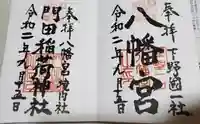 奉拝
下野國一社
八幡宮
令和二年九月十五日
奉拝
八幡宮境内社
門田稲荷神社
令和二年九月十五日